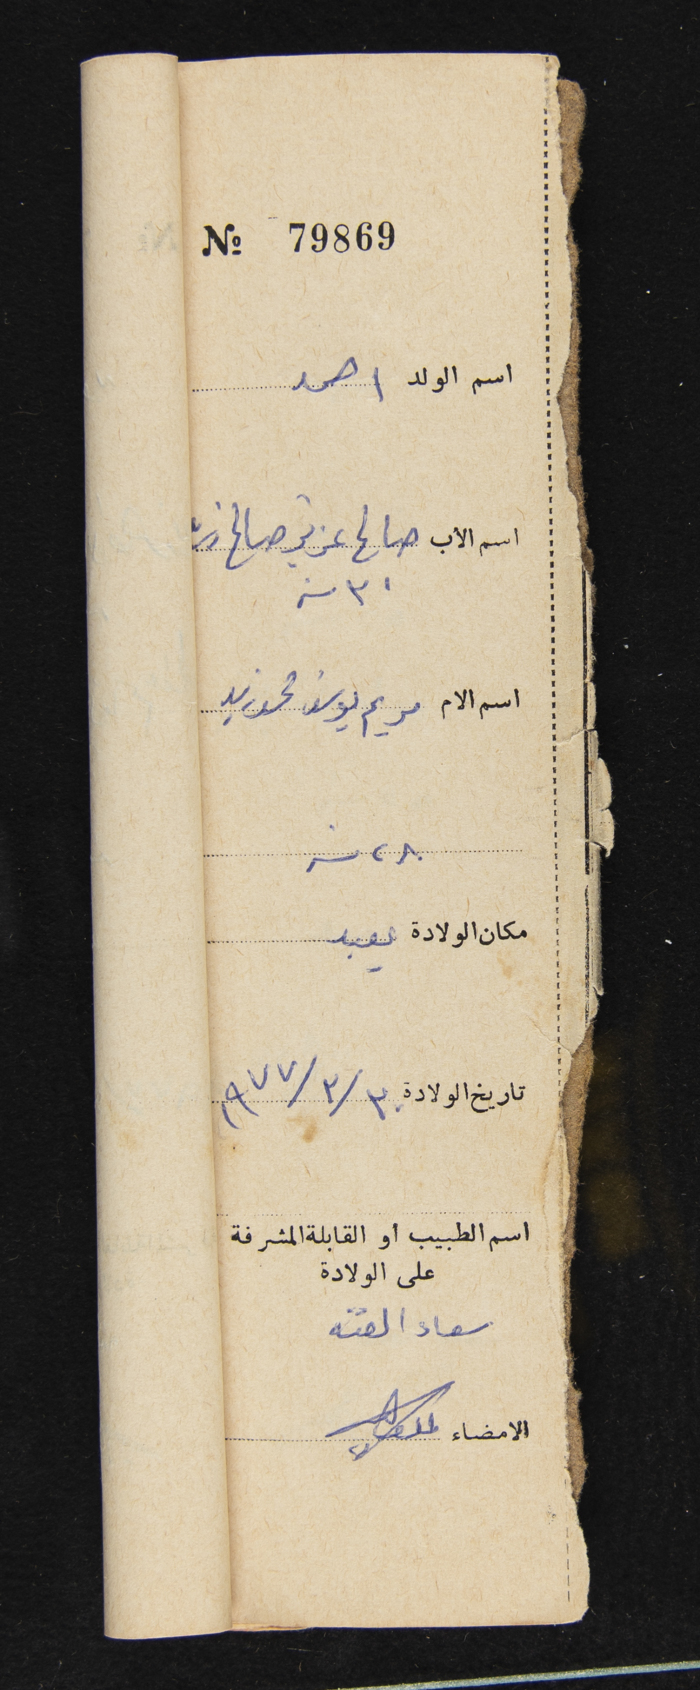 № 79869
اسم الولد احمد
اسم الأب صالح عزمي صالح
٣١ سنة
اسم الام مريم يوسف محمود زيد
٢٨ سنة
مكان الولادة يعبد
تاريخ الولادة ٣٠/٣/١٩٧٧
اسم الطبيب او القابلة المشرفة
على الولادة
سعاد
الامضاء